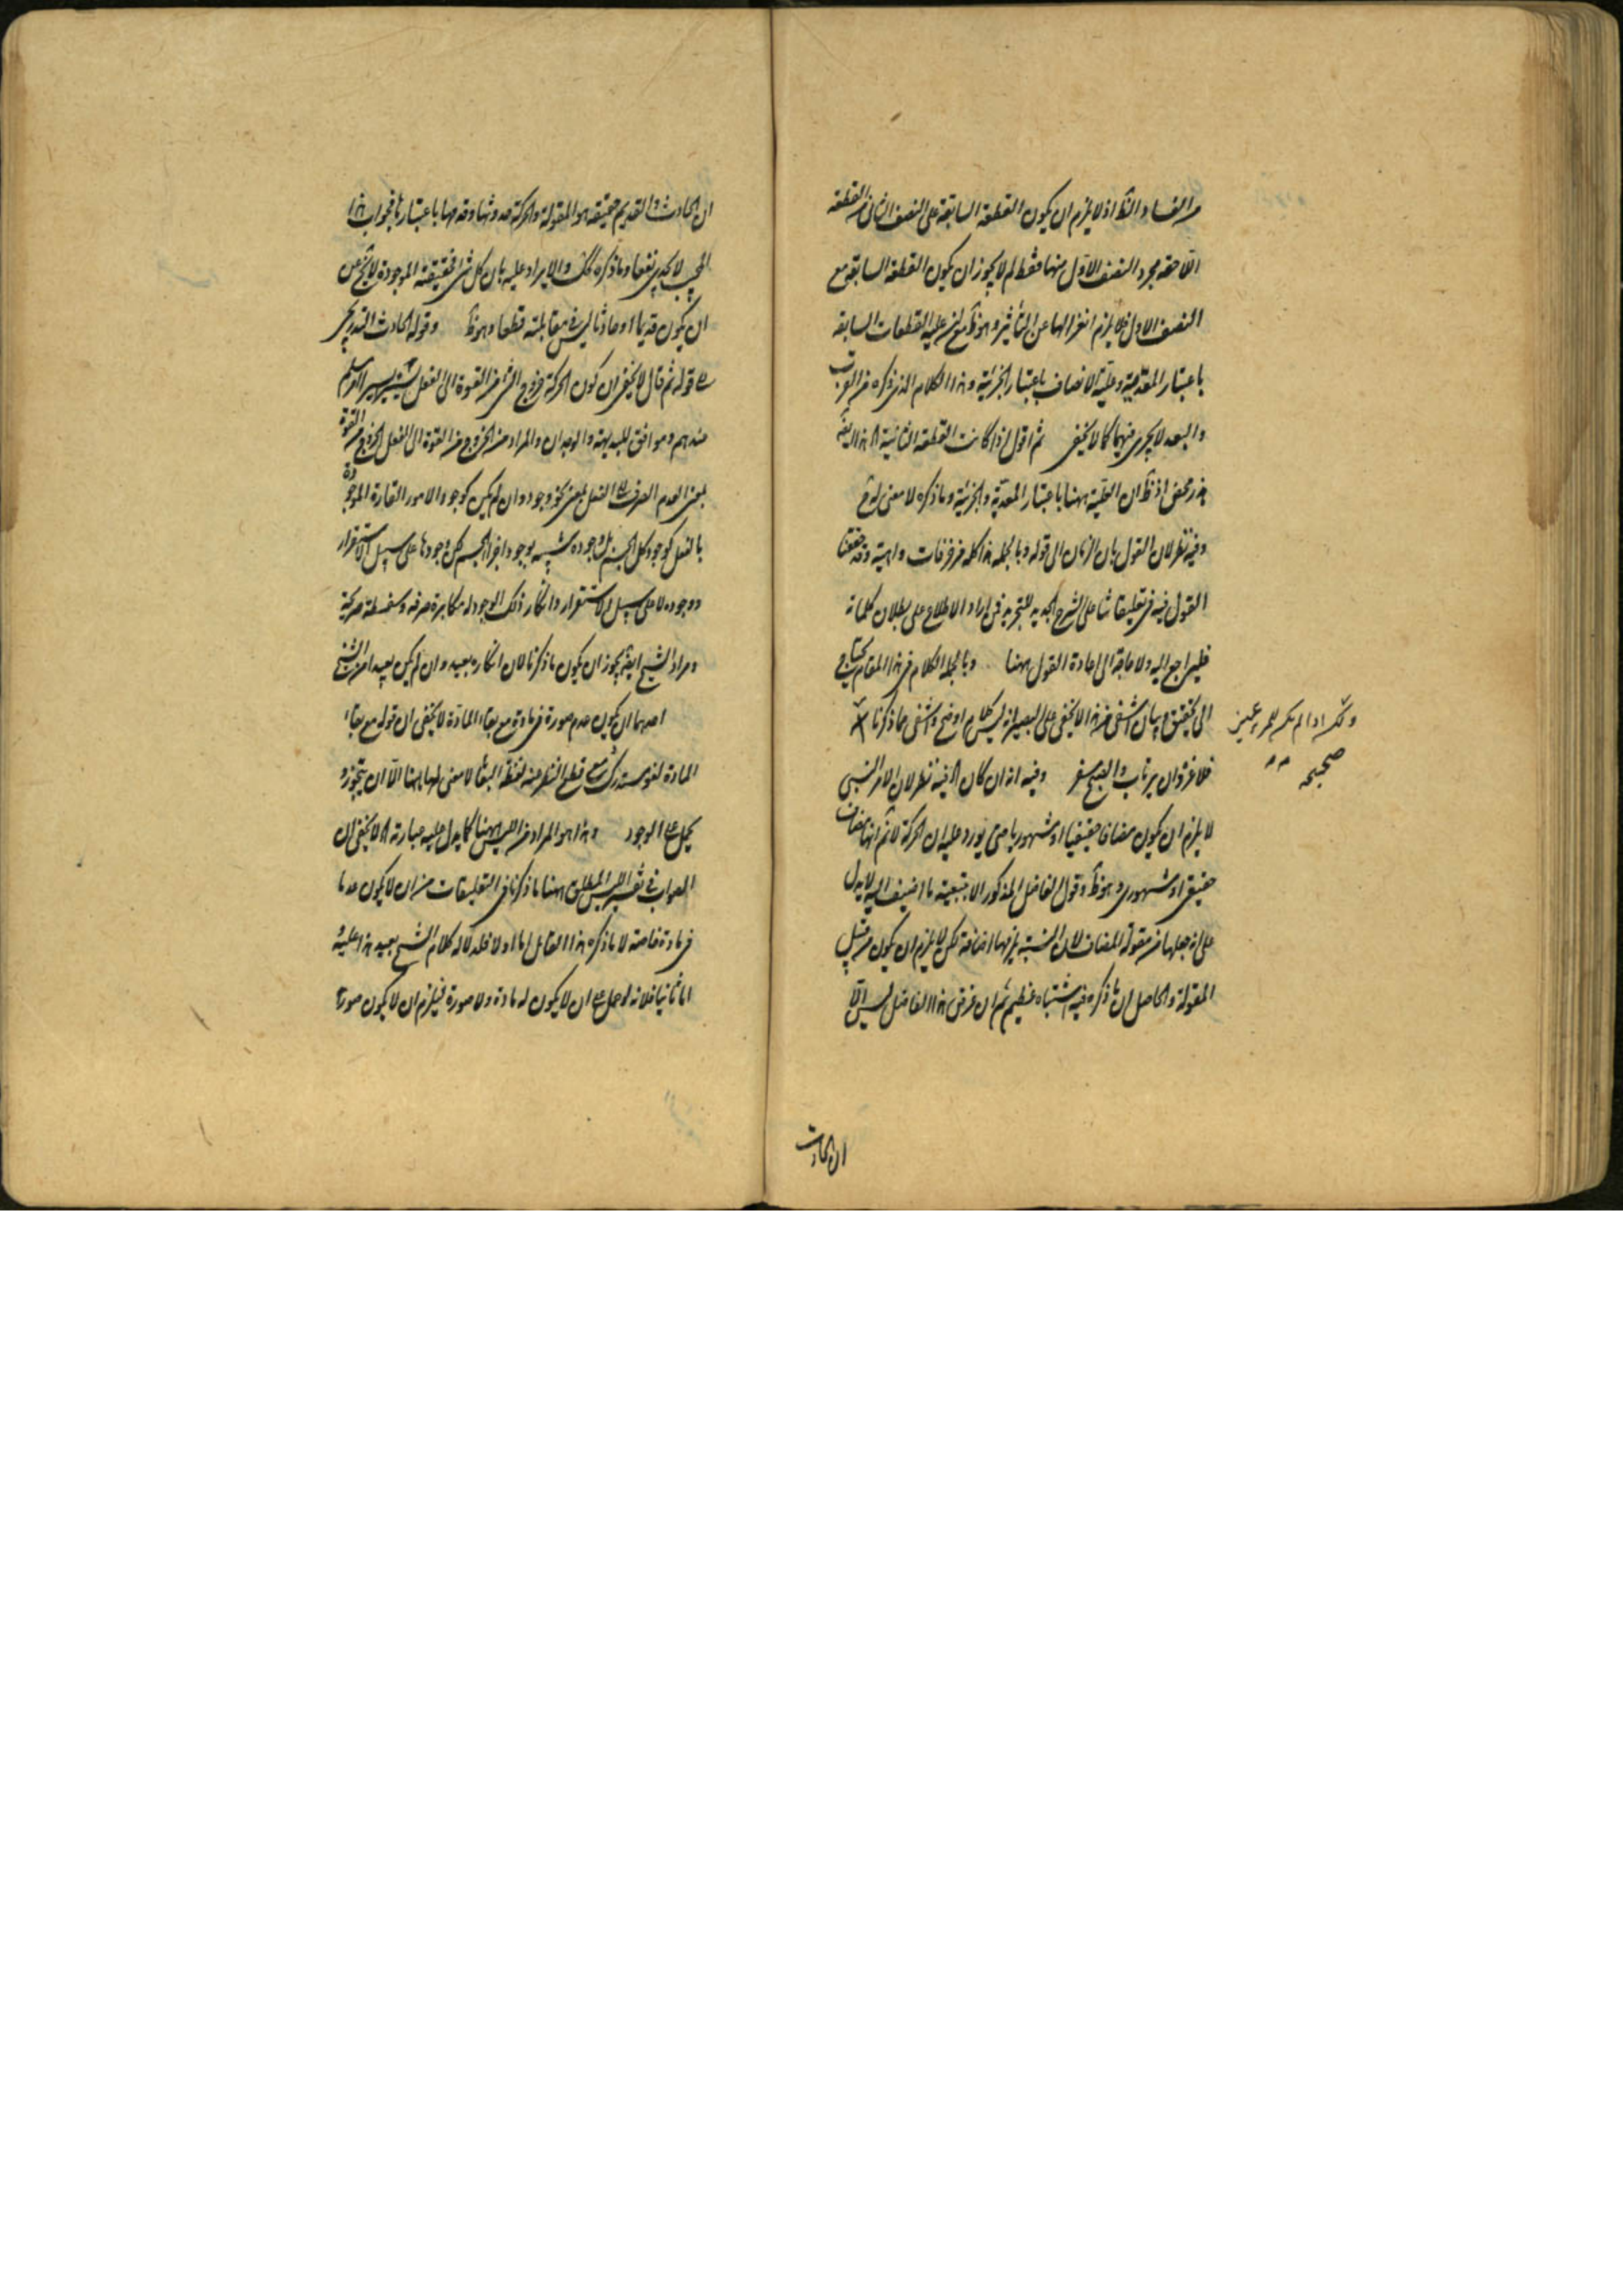 من الفساد والنظر اذ لا يلزم ان يكون القطعة السابقة على النصف الثاني من القطعة
اللاحقة مجرد النصف الاول منها فقط لم لا يجوز ان يكون القطعة السابقة مع
النصف الاول فلا يلزم انعزالها عن التأثير وهو ظ القطعات السابقة
باعتبار المعدية وعلية الانصاف باعتبار الجزئية وهذا الكلام الذي ذكره من القرب
والبعد لا يجري فيهما كما لا يخفى ثم اقول اذا كانت القطعة الثانية
هذر محض اذ ظ ان العلية ههنا باعتبار المعدية والجزئية وما ذكره لا معنى له
وفيه نظر لان القول بان الزمان الى قوله وبالجملة هذا كله مزخرفات واهية وقد حققنا
القول فيه في تعليقاتنا على الشرح الجديد للتجريد فمن اراد الاطلاع على بطلان كلماته
فليراجع اليه ولا حاجة الى اعادة القول ههنا وبالجملة الكلام في هذا المقام يحتاج
الى تحقيق وبيان اشفى من هذا لا يخفى على البصير انه ليس كلام اوضح واشفى مما ذكرنا
ولكن اذا لم يكن للمرء عين
صحيحة
فلا غرو ان يرتاب والصبح مسفر وفيه انه ان كان فيه نظر لان الامر النسبي
لا يلزم ان يكون مضافا حقيقيا او مشهوريا حتى يورد عليه ان الحركة لا ثم انها مضاف
حقيقي او مشهوري وهو ظ وقول الفاضل المذكور الا بتبعية ما اضيف اليه لا يدل
على انه جعلها من مقولة المضاف لان النسبة يلزمها اضافة لكن لا يلزم ان يكون من قبيل
المقولة والحاصل ان ما ذكره فيه اشتباه عظيم ثم ان غرض هذا الفاضل ليس الا
ان الحادث
ان الحادث والقديم حقيقة هو المقولة والحركة حدوثها وقدمها باعتبارها فجواب هذا
المجيب لا يجدي نفعا وما ذكره والايراد عليه بان كل شئ حقيقته الموجودة لا يخ عن
ان يكون قديما او حادثا ليس في مقابلته قطعا وهو ظ وقوله الحادث التدريجي
قوله ثم قال لا يخفى ان كون الحركة خروج الشئ من القوة الى الفعل يسيرا يسيرا امر مسلم
عندهم وموافق للبديهة والوجدان والمراد من الخروج من القوة الى الفعل الخروج من القوة
بمعنى العدم الصرف الى الفعل بمعنى نحو وجود وان لم يكن كوجود الامور القارة الموجودة
بالفعل كوجود كل الجسم بل وجوده شبيه بوجود اجزاء الجسم لكن وجودها على سبيل الاستقرار
ووجوده لا على سبيل الاستقرار وانكار ذلك الوجود له مكابرة صرفه وسفسطة صريحة
ومراد الشيخ ايضا يجوز ان يكون ما ذكرنا لان انكاره بعيد وان لم يكن بعيدا من الشيخ
احدهما ان يكون عدم صورة في مادة مع بقاء المادة لا يخفى ان قوله مع بقاء
المادة لغو مستدرك مع قطع النظر منه لفظ البقاء لا معنى لها ههنا الا ان يتجوز و
يحمل على الوجود وهذا هو المراد من الليس ههنا كما يدل عليه عبارته لا يخفى ان
الصواب في تفسير الليس المطلق ههنا ما ذكرنا في التعليقات من ان لا يكون عدما
في مادة خاصة لا ما ذكره هذا القائل اما اولا فلدلالة كلام الشيخ بعيد هذا عليه و
اما ثانيا فلانه لو حمل على ان لا يكون له مادة ولا صورة فيلزم ان لا يكون صورة